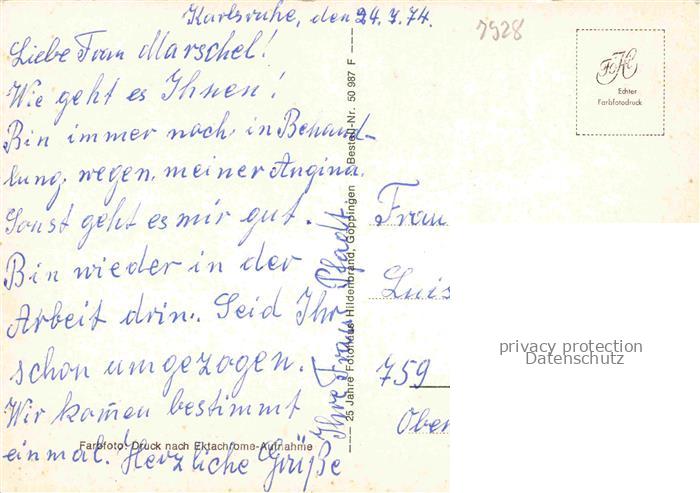 Karlsruhe, den 24.7.74.
7928
Liebe Frau Marschel!
Wie geht es Ihnen!
Bin immer noch in Behand-
lung wegen meiner Angina.
Sonst geht es mir gut.
Bin wieder in der
Arbeit drin. Seid Ihr
schon umgezogen.
Wir kom̄en bestimmt
einmal. Herzliche Grüße
Ihre Frau
Farbfoto: Druck nach Ektachrome-Aufnahme
25 Jahre Fotohaus Hildenbrand, Göppingen Bestell-Nr. 50 987 F
FeHi
Echter
Farbfotodruck
Frau
Luis
759
Ober
privacy protection
Datenschutz